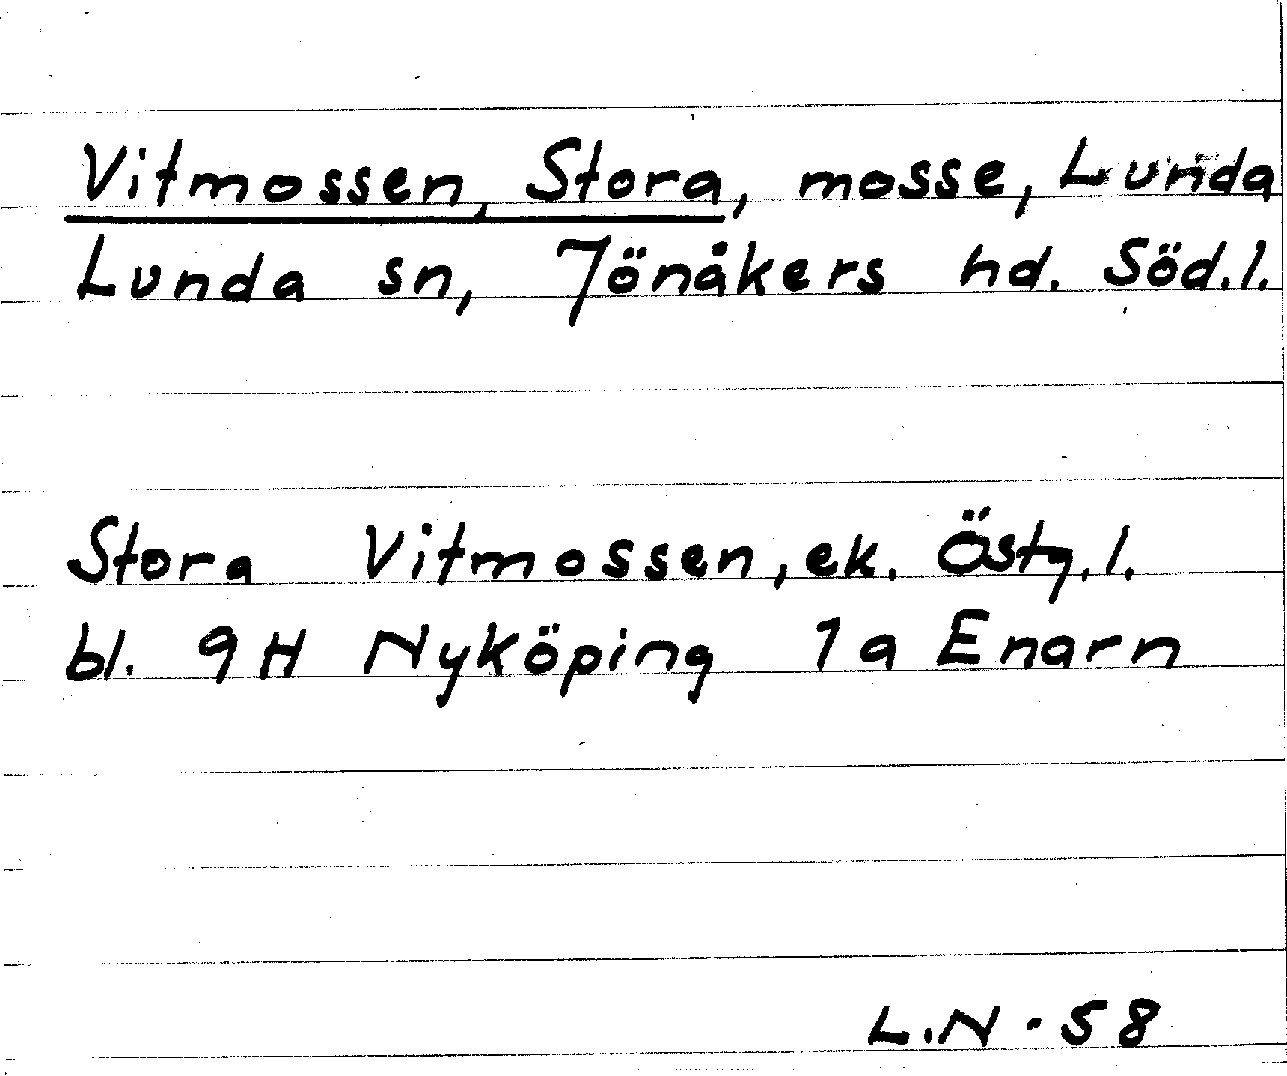 Vitmossen, Stora, mosse, Lunda
Lunda sn, Jönåkers hd. Söd.l.
Stora Vitmossen, ek. Östg.l.
bl. 9H Nyköping 1a Enarn
L.N - 58